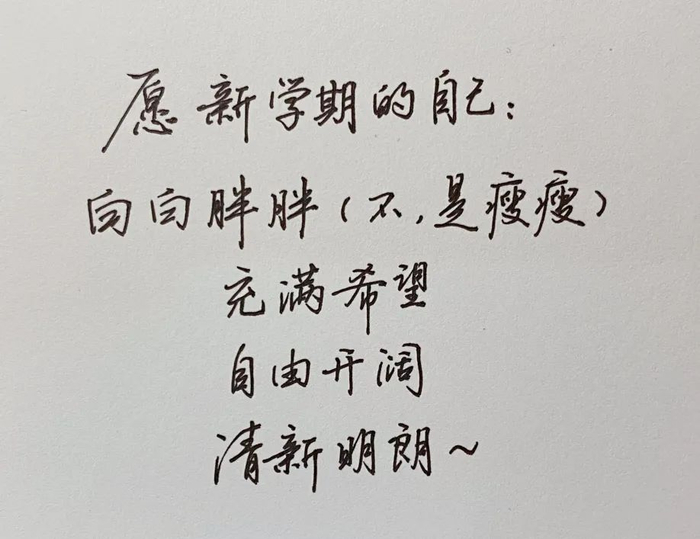 愿新学期的自己：
白白胖胖（不，是瘦瘦）
充满希望
自由开阔
清新明朗~